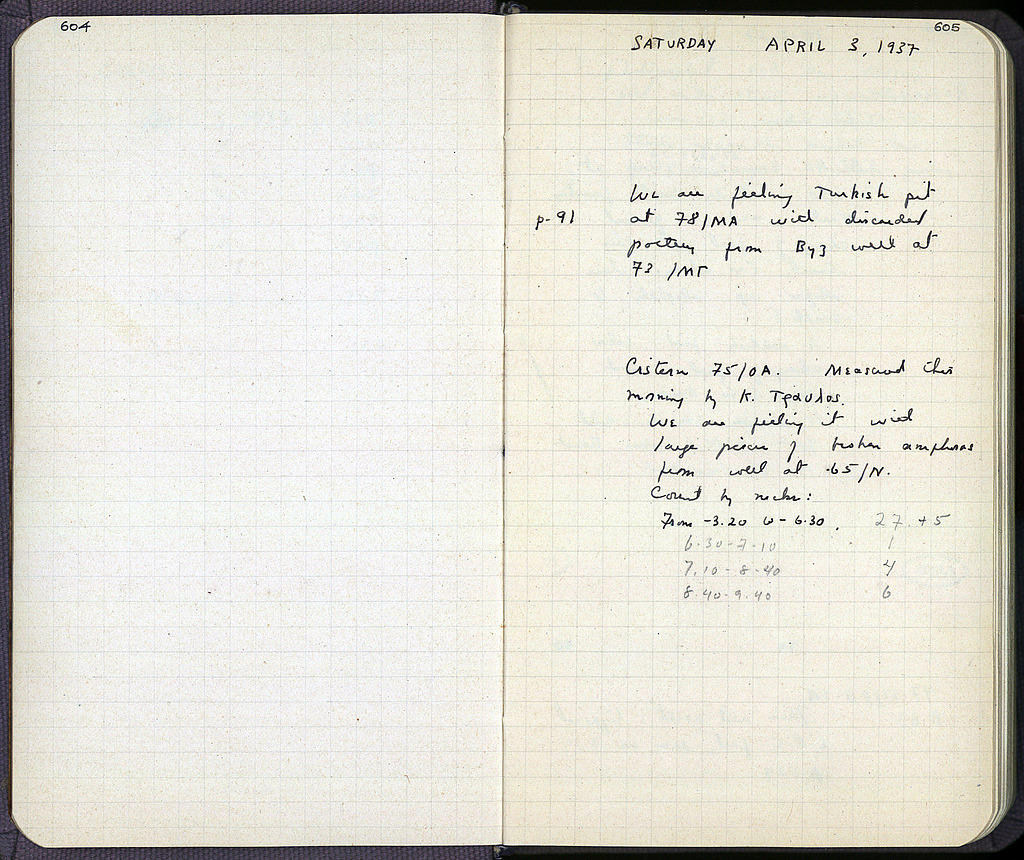 604
605
SATURDAY APRIL 3, 1937
We are filling Turkish pit
p. 91 at 78/ΜΑ with discarded
pottery from Byz well at
73/ΜΓ
Cistern 75/ΟΑ. Measured this
morning by K. Τραυλος.
We are filling it with
large pieces of broken amphoras
from well at 65/Ν.
Count by necks:
From -3.20 to -6.30. 27 + 5
6.30-7.10 1
7.10-8.40 4
8.40-9.40 6